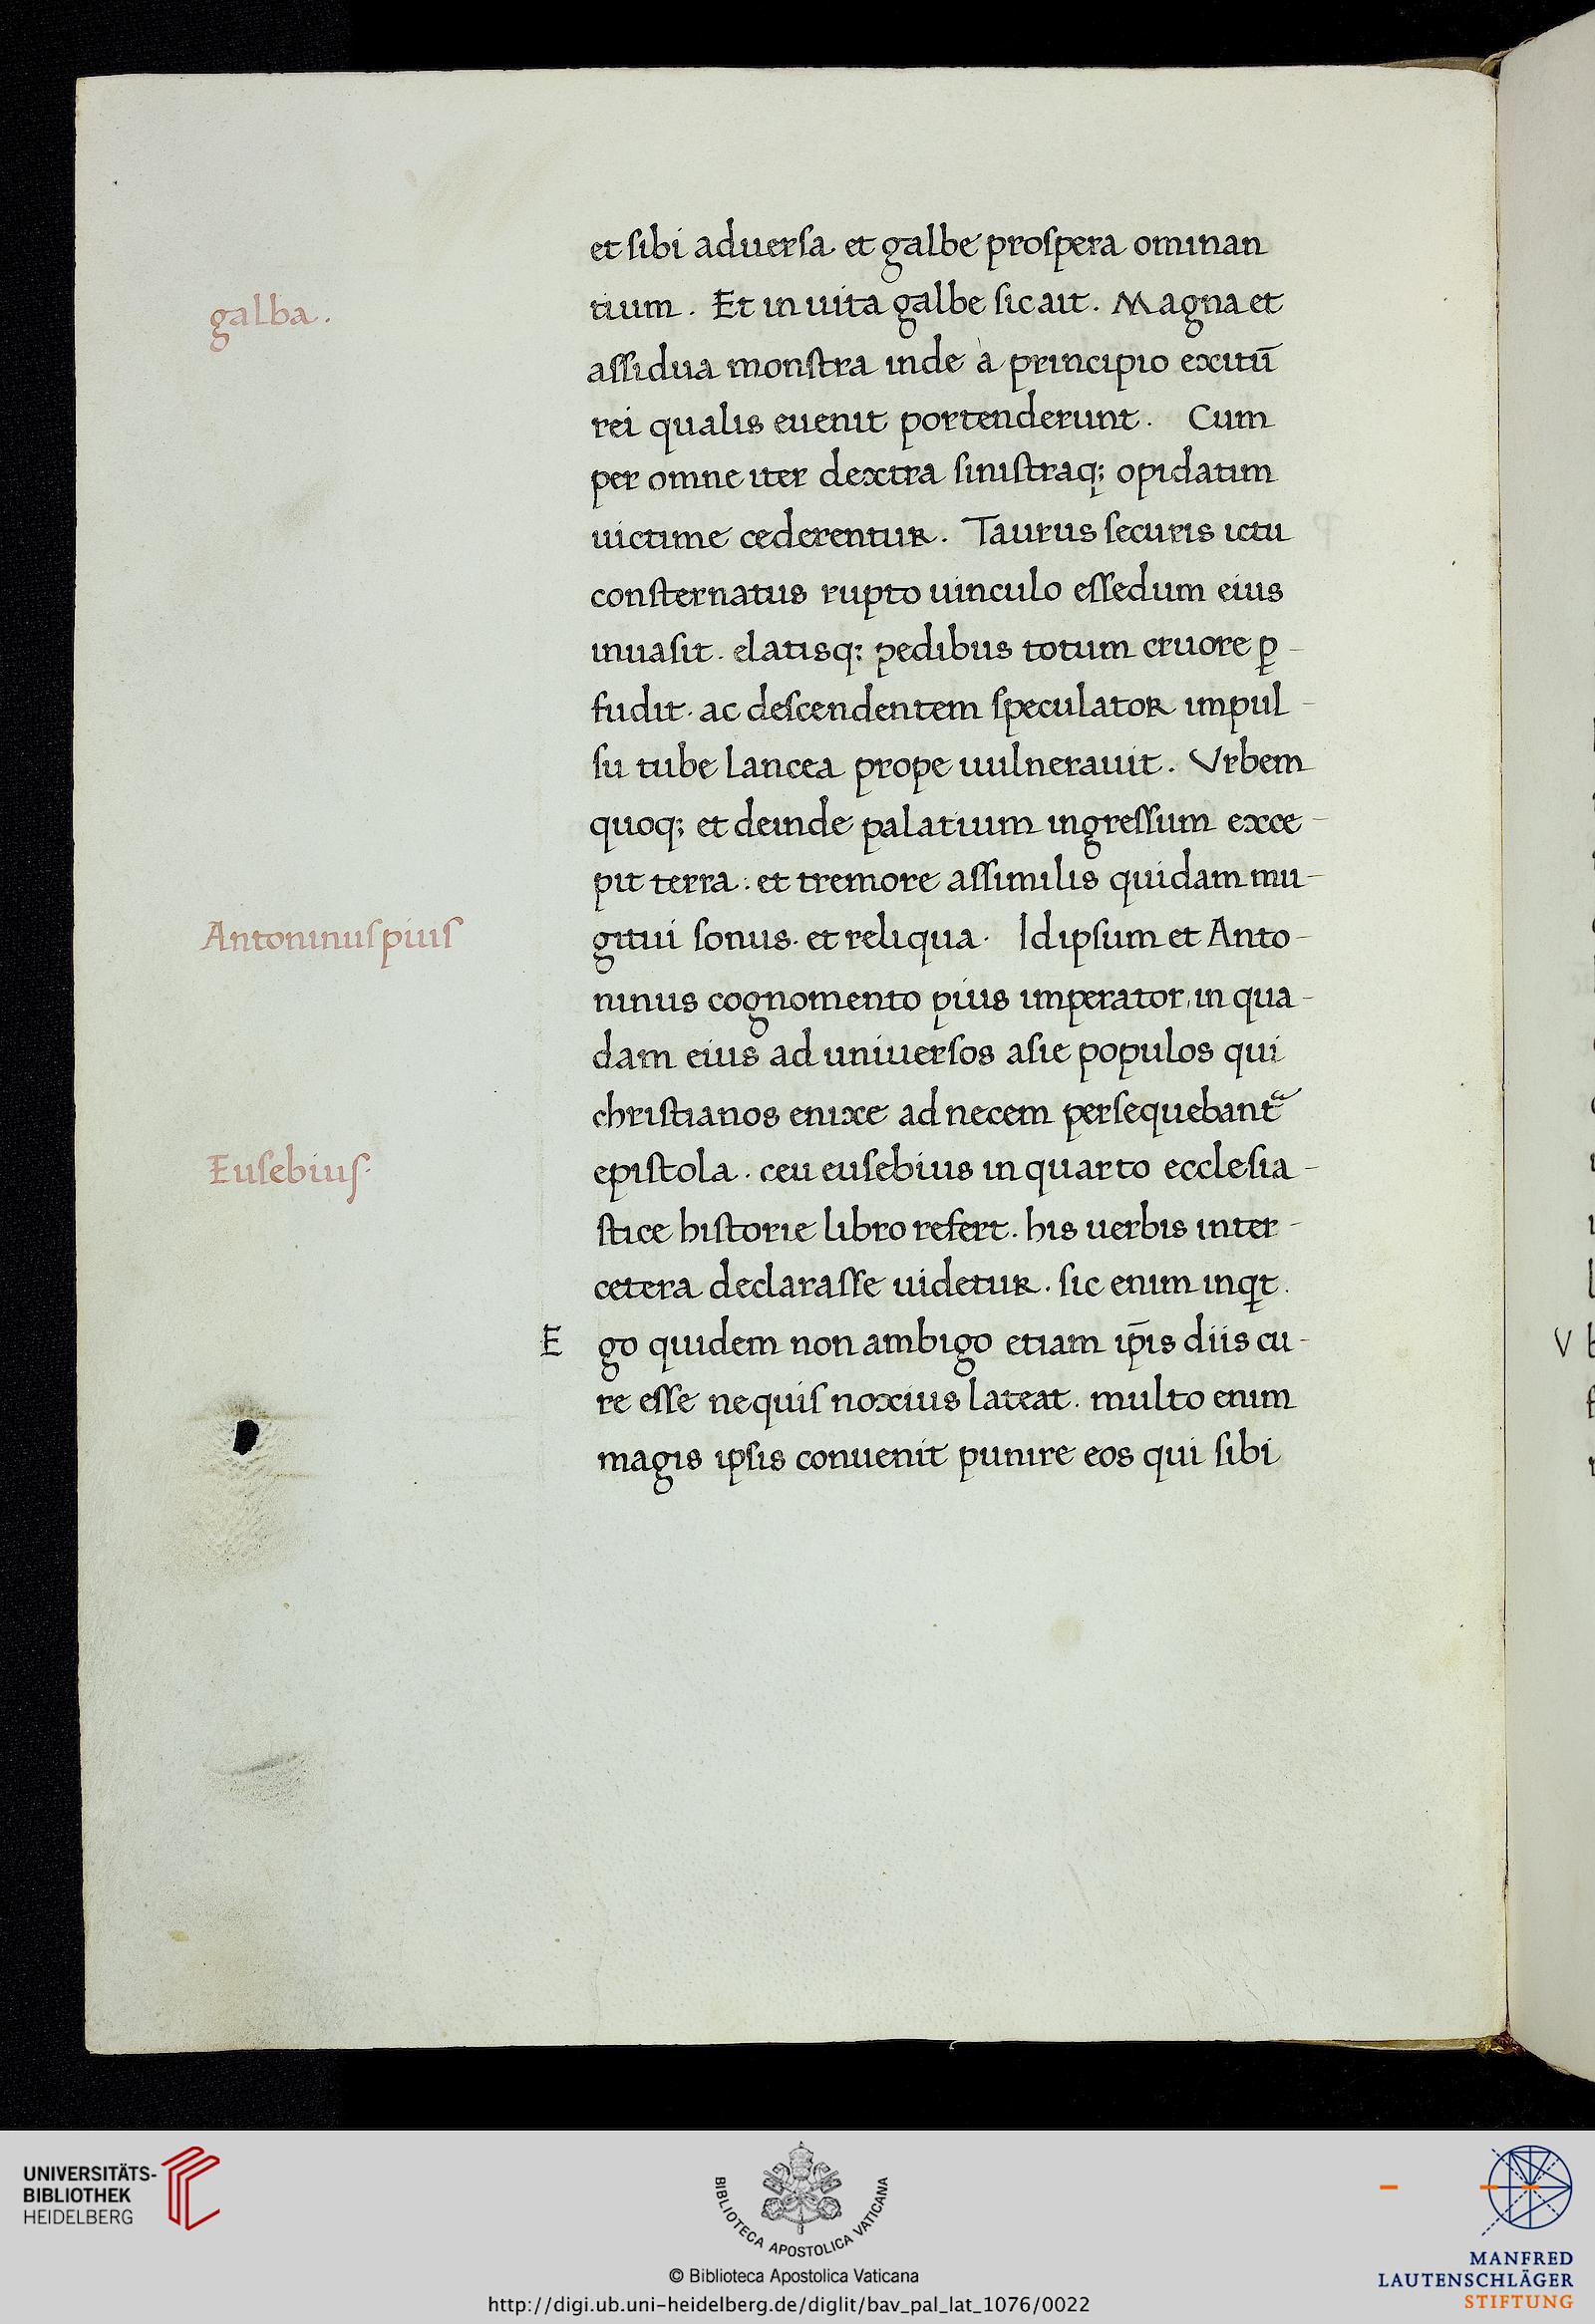 et sibi aduersa. et galbe prospera ominan
galba.
tium. Et in uita galbe sic ait. Magna et
assidua monstra inde à principio exitū
rei qualis euenit portenderunt. Cum
per omne iter dextra sinistraq; opidatim
uictime cederentur. Taurus securis ictu
consternatus rupto uinculo essedum eius
inuasit. elatisq; pedibus totum cruore ꝑ-
fudit. ac descendentem speculator impul-
su tube lancea prope uulnerauit. Vrbem
quoq; et deinde palatium ingressum exce-
pit terra: et tremore assimilis quidam mu-
Antoninus pius
gitui sonus. et reliqua. Idipsum et Anto-
ninus cognomento pius imperator, in qua-
dam eius ad uniuersos asie populos qui
christianos enixe ad necem persequebant᷑
Eusebius.
epistola. ceu eusebius in quarto ecclesia-
stice historie libro refert. his uerbis inter-
cetera declarasse uidetur. sic enim inqt.
Ego quidem non ambigo etiam ip̄is diis cu-
re esse nequis noxius lateat. multo enim
magis ipsis conuenit punire eos qui sibi
V
UNIVERSITÄTS-
BIBLIOTHEK
HEIDELBERG
BIBLIOTECA APOSTOLICA VATICANA
© Biblioteca Apostolica Vaticana
http://digi.ub.uni-heidelberg.de/diglit/bav_pal_lat_1076/0022
MANFRED
LAUTENSCHLÄGER
STIFTUNG